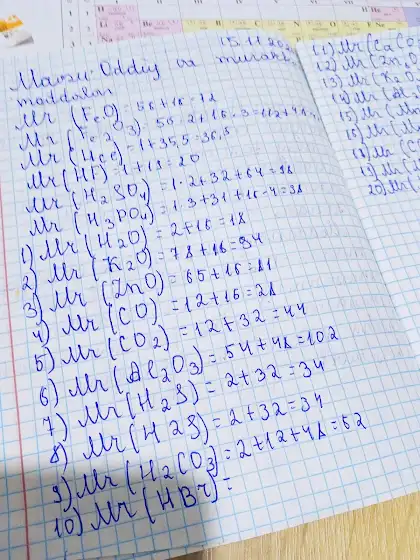 15.11.202
Mavzu: Oddiy va murakk
moddalar
Mr (FeO) = 56+16=72
Mr (Fe2O3) = 56·2+16·3=112+48
Mr (HCl) = 1+35,5=36,5
Mr (HF) = 1+19=20
Mr (H2SO4) = 1·2+32+64=98
Mr (H3PO4) = 1·3+31+16·4=98
1) Mr (H2O) = 2+16=18
2) Mr (K2O) = 78+16=94
3) Mr (ZnO) = 65+16=81
4) Mr (CO) = 12+16=28
5) Mr (CO2) = 12+32=44
6) Mr (Al2O3) = 54+48=102
7) Mr (H2S) = 2+32=34
8) Mr (H2S) = 2+32=34
9) Mr (H2CO3) = 2+12+48=62
10) Mr (HBr) =
11) Mr (CaC
12) Mr (Zn
13) Mr (K2
14) Mr (Al
15) Mr
16) Mr
18) Mr (C
19) Mr
20) Mr